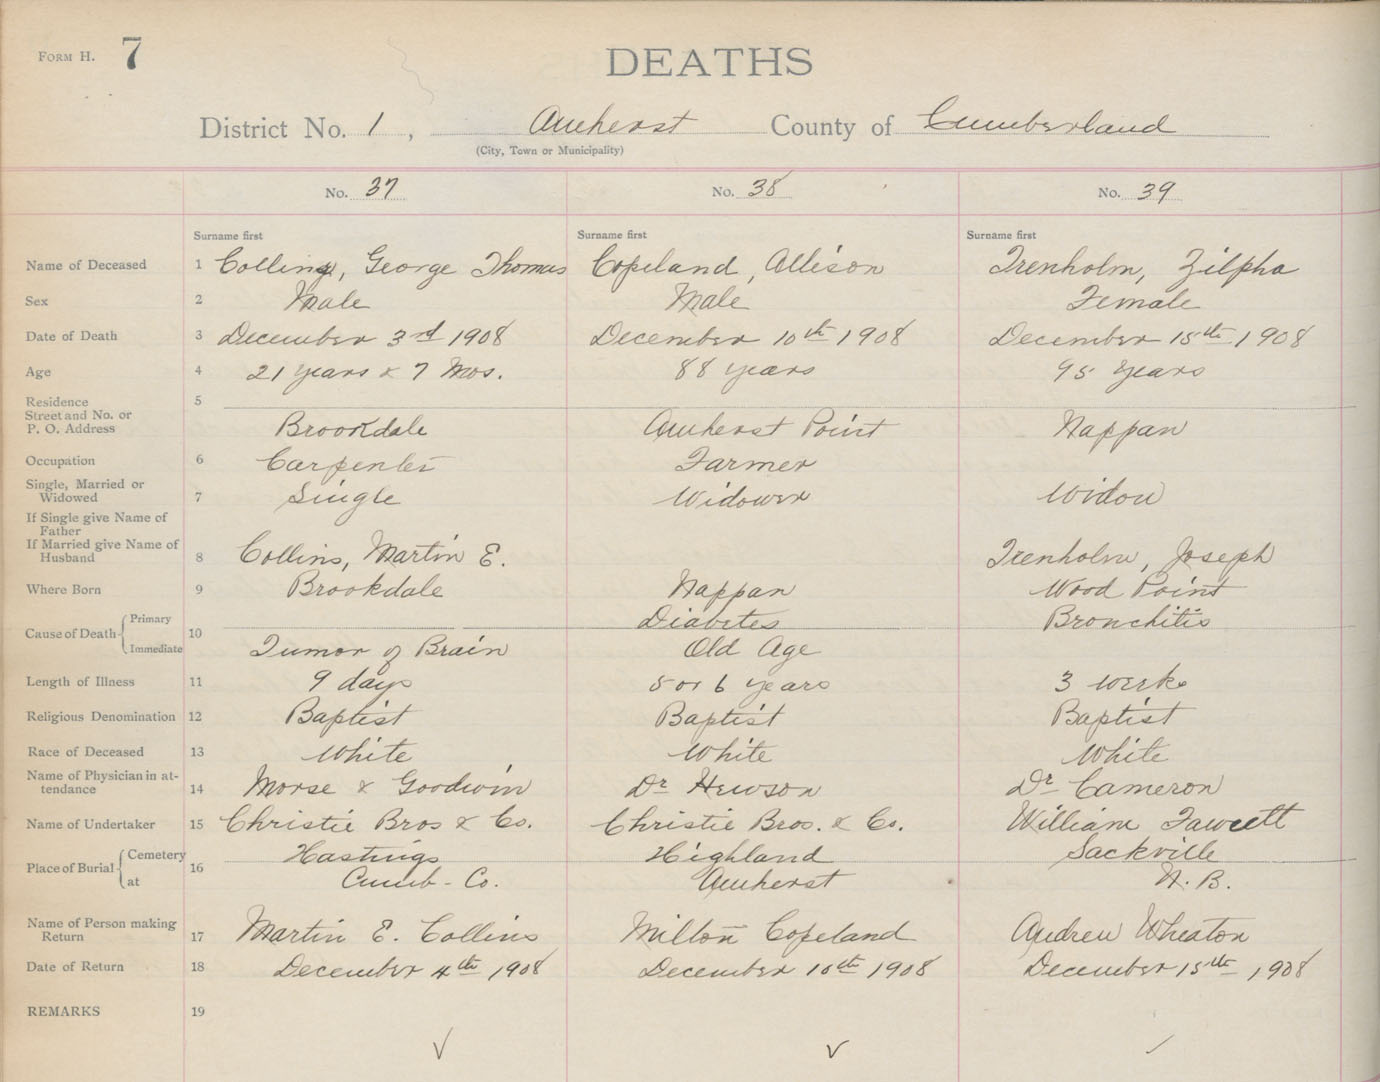 FORM H. 7
DEATHS
District No. 1, Amherst County of Cumberland
(City, Town or Municipality)
No. 37 No. 38 No. 39
Surname first Surname first Surname first
Name of Deceased 1 Collins, George Thomas Copeland, Allison Trenholm, Zilpha
Sex 2 Male Male Female
Date of Death 3 December 3rd 1908 December 10th 1908 December 15th 1908
Age 4 21 years & 7 Mos. 88 years 95 years
Residence 5
Street and No. or
P. O. Address Brookdale Amherst Point Nappan
Occupation 6 Carpenter Farmer
Single, Married or
Widowed 7 Single Widower Widow
If Single give Name of
Father
If Married give Name of
Husband 8 Collins, Martin E. Trenholm, Joseph
Where Born 9 Brookdale Nappan Wood Point
Cause of Death Primary 10 Diabetes Bronchitis
Immediate Tumor of Brain Old Age
Length of Illness 11 9 days 5 or 6 years 3 weeks
Religious Denomination 12 Baptist Baptist Baptist
Race of Deceased 13 White White White
Name of Physician in at-
tendance 14 Morse & Goodwin Dr Hewson Dr Cameron
Name of Undertaker 15 Christie Bros & Co. Christie Bros. & Co. William Fawcett
Place of Burial Cemetery 16 Hastings Highland Sackville
at Cumb- Co. Amherst N. B.
Name of Person making
Return 17 Martin E. Collins Milton Copeland Andrew Wheaton
Date of Return 18 December 4th 1908 December 10th 1908 December 15th, 1908
REMARKS 19